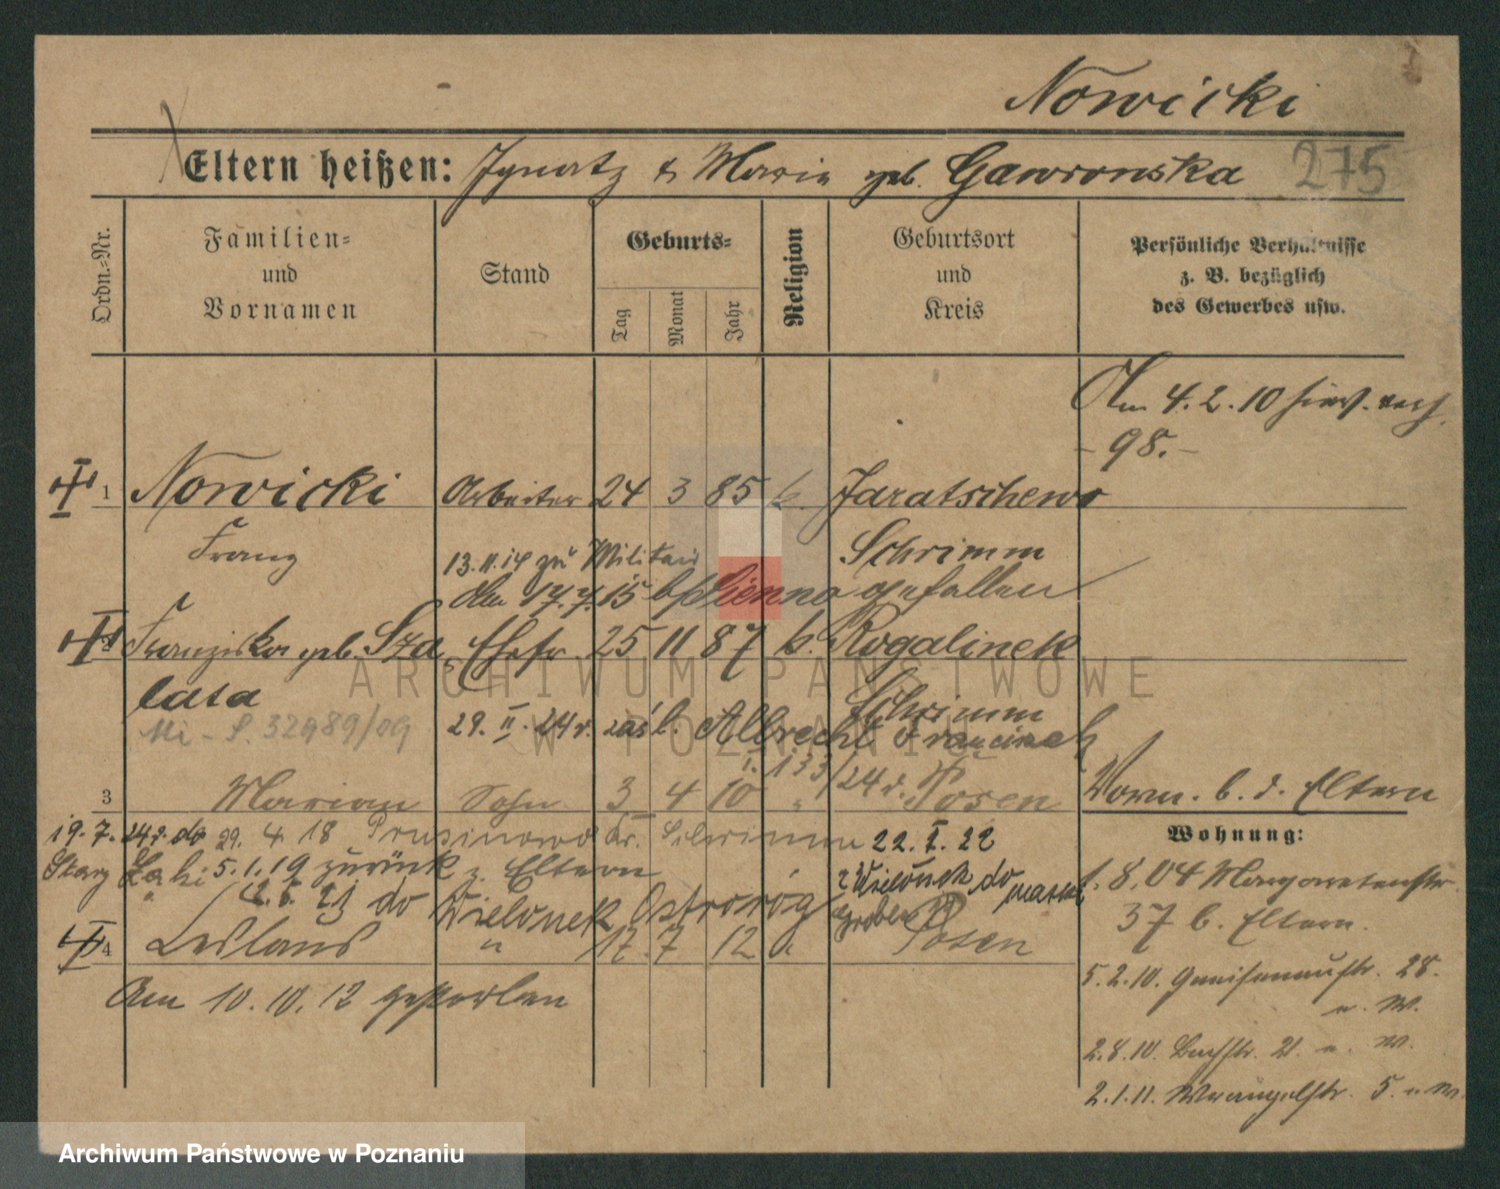 Nowicki
Eltern heißen: Ignatz & Maria geb. Gawronska 275
Ordn.-Nr.
Familien- und Vornamen
Stand
Geburts-
Tag
Monat
Jahr
Religion
Geburtsort und Kreis
Persönliche Verhältnisse z. B. bezüglich des Gewerbes usw.
Am 4. 2. 10 hier. verh.
- 98. -
1 Nowicki Arbeiter 24 3 85 k. Jaratschewo
Franz Schrimm
13. 11. 14 zu Militair
Am 17. 7. 15 b/ Sienno gefallen
2 Franziska geb. Sza Ehefr. 25 11 87 k. Rogalinek
lata Schrimm
Mi - S. 32989/09 29. II. 24 r. zaśl. Albrecht Franciszek
I. 133/24 r.
3 Marian Sohn 3 4 10 " Posen Vorn. b. d. Eltern
19. 7. 24 r. do 29. 4 18 Prusinowo Kr. Schrimm 22. I. 22
5. 1. 19 zurück z. Eltern z Wielonek do
21 do Wielonek Ostroróg
4 Leslaus " 17. 7 12 " Posen
Am 10. 10. 12 gestorben
Wohnung:
1. 8. 04 Margaretenstr.
37 b. Eltern.
5. 2. 10. Gneisenaustr. 28.
u. W.
2. 8. 10. Bachstr. 21. u. W.
2. 1. 11. Wrangelstr. 5. u. W.
ARCHIWUM PAŃSTWOWE
W POZNANIU
Archiwum Państwowe w Poznaniu